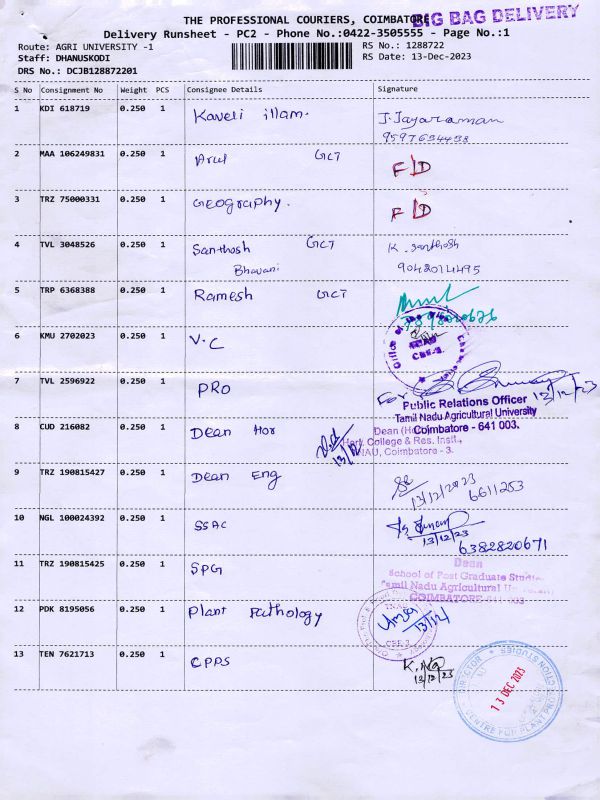 THE PROFESSIONAL COURIERS, COIMBATORE
BIG BAG DELIVERY
Delivery Runsheet - PC2 - Phone No.:0422-3505555 - Page No.:1
Route: AGRI UNIVERSITY -1
RS No.: 1288722
Staff: DHANUSKODI
RS Date: 13-Dec-2023
DRS No.: DCJB128872201
S No Consignment No Weight PCS Consignee Details Signature
1 KDI 618719 0.250 1 Kaveli illam. J. Jayaraman
9597654458
2 MAA 106249831 0.250 1 Arul GCT F/D
3 TRZ 75000331 0.250 1 Geography. F/D
4 TVL 3048526 0.250 1 Santhosh GCT K. Santhosh
Bhavani 9042014495
5 TRP 6368388 0.250 1 Ramesh GCT
6 KMU 2702023 0.250 1 V.C
Office of the
CBE-3.
7 TVL 2596922 0.250 1 PRO For 13/12/23
Public Relations Officer
Tamil Nadu Agricultural University
Coimbatore - 641 003.
8 CUD 216082 0.250 1 Dean Hor 13/12
Dean
Hort. College & Res. Inst.,
TNAU, Coimbatore - 3.
9 TRZ 190815427 0.250 1 Dean Eng 13/12/2023
6611253
10 NGL 100024392 0.250 1 SSAC
13/12/23
6382820671
11 TRZ 190815425 0.250 1 SPG
Dean
School of Post Graduate Studies
Tamil Nadu Agricultural University
COIMBATORE-641 003
12 PDK 8195056 0.250 1 Plant Pathology
TNAU
13/12/
CBE-3
13 TEN 7621713 0.250 1 CPPS
13/12/23
DIRECTOR
13 DEC 2023
CENTRE FOR PLANT PROTECTION STUDIES